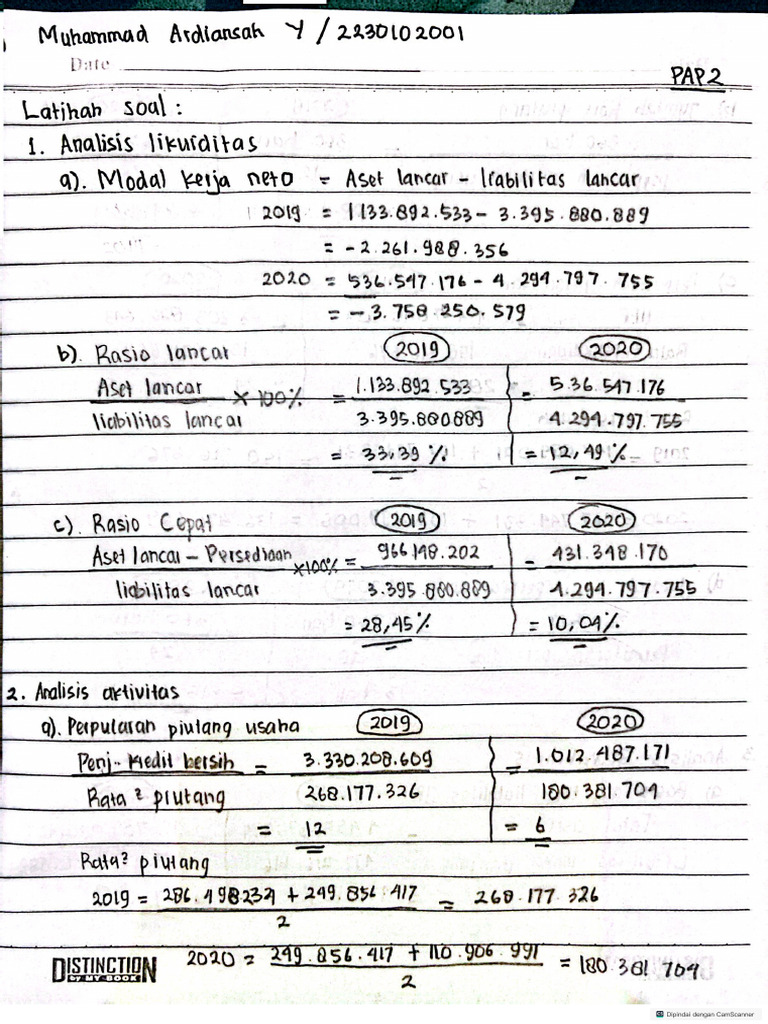 Muhammad Ardiansah Y / 2230102001
Date
PAP2
Latihan soal :
1. Analisis likuiditas
a). Modal kerja neto = Aset lancar - liabilitas lancar
2019 = 1.133.892.533 - 3.395.880.889
= -2.261.988.356
2020 = 536.547.176 - 4.294.797.755
= -3.758.250.579
b). Rasio lancar 2019 2020
Aset lancar x 100% = 1.133.892.533 = 536.547.176
liabilitas lancar 3.395.880.889 4.294.797.755
= 33,39 % = 12,49 %
c). Rasio Cepat 2019 2020
Aset lancar - Persediaan x100% = 966.148.202 = 431.348.170
liabilitas lancar 3.395.880.889 4.294.797.755
= 28,45% = 10,04%
2. Analisis aktivitas
a). Perputaran piutang usaha 2019 2020
Penj. Kredit bersih = 3.330.208.609 = 1.012.487.171
Rata² piutang 268.177.326 180.381.704
= 12 = 6
Rata² piutang
2019 = 286.498.234 + 249.856.417 = 268.177.326
2
2020 = 249.856.417 + 110.906.991 = 180.381.704
2
DISTINCTION
BY MY BOOK
Dipindai dengan CamScanner